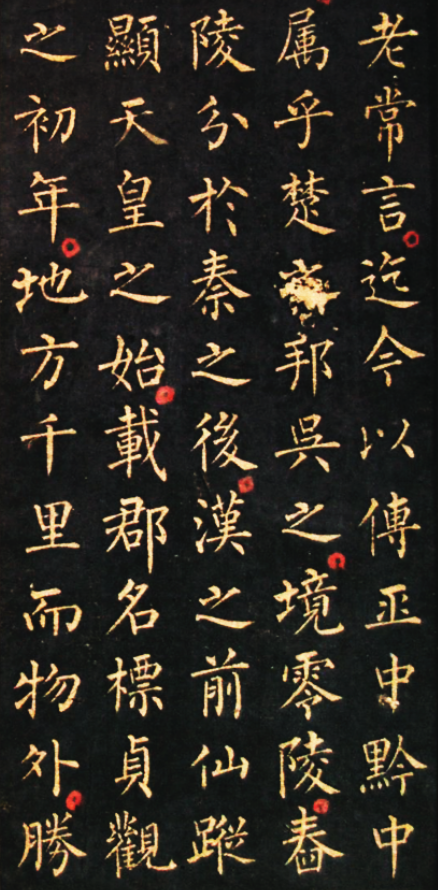 老常言迄今以傳中黔中
属乎楚邦吳之境零陵舂
陵分於秦之後漢之前仙蹤
顯天皇之始載郡名標貞觀
之初年地方千里而物外勝